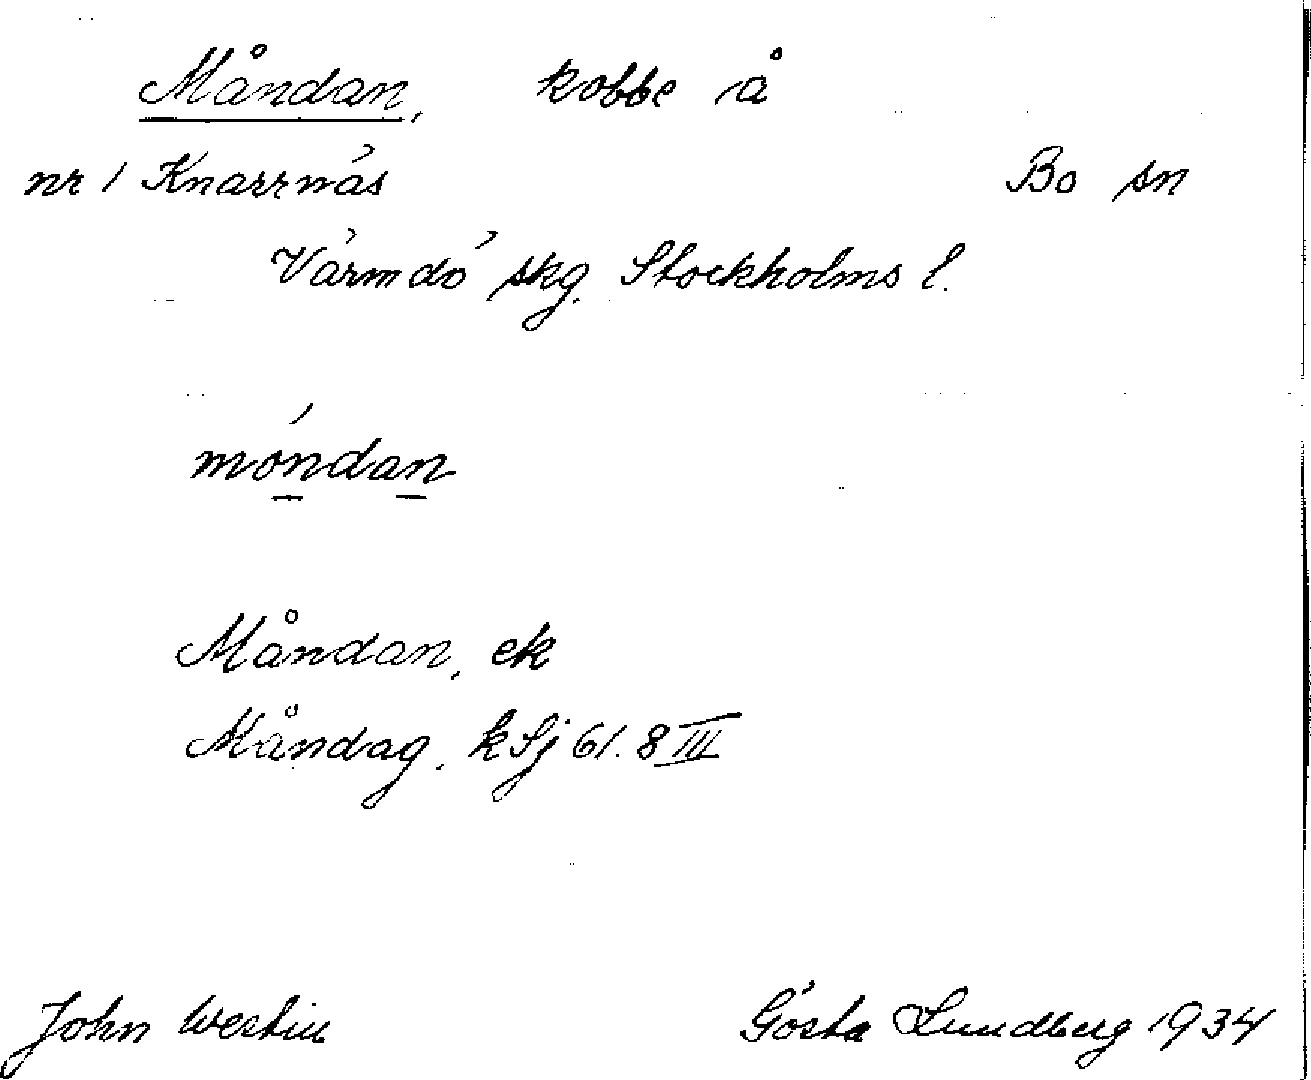 Måndan, kobbe å
nr 1 Knarrnäs Bo sn
Värmdö skg. Stockholms l.
móndan
Måndan, ek
Måndag, k Sj 61. 8 III
John Westin Gösta Lundberg 1934